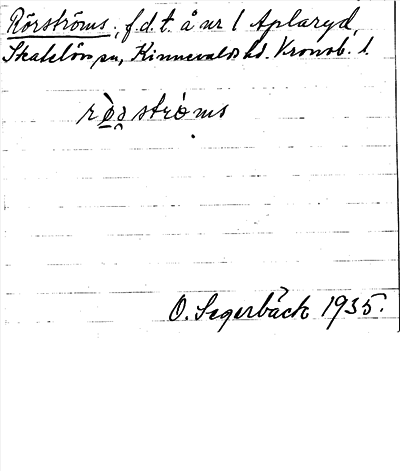 Rörströms, f.d.t. å nr 1 Aplaryd,
Skatelövs sn, Kinnevalds hd. Kronob. l.
O. Segerbäck 1935.